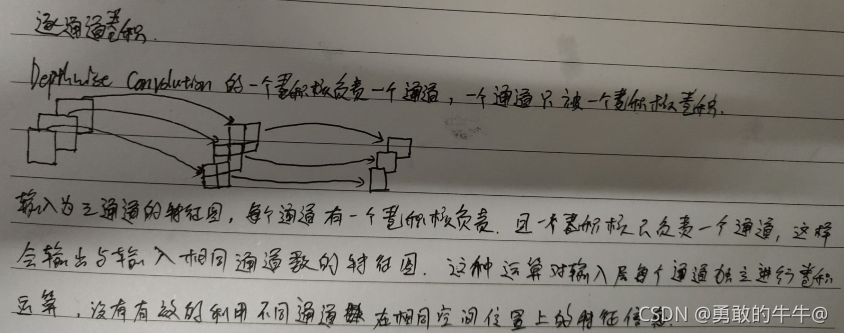 逐通道卷积.
Depthwise Convolution 的一个卷积核负责一个通道，一个通道只被一个卷积核卷积.
输入为三通道的特征图，每个通道有一个卷积核负责. 且一个卷积核只负责一个通道，这样
会输出与输入相同通道数的特征图. 这种运算对输入层每个通道独立进行卷积
运算，没有有效的利用不同通道在相同空间位置上的特征信息.
CSDN @勇敢的牛牛@